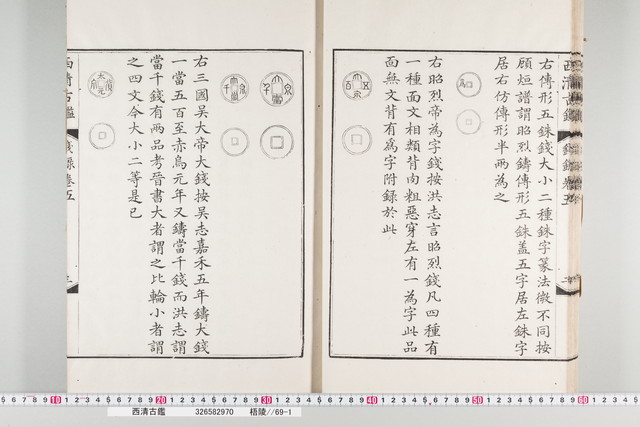 右傳形五銖錢大小二種銖字篆法微不同按
顧烜譜謂昭烈鑄傳形五銖蓋五字居左銖字
居右仿傳形半兩為之
右昭烈帝為字錢按洪志言昭烈錢凡四種有
一種面文相類背肉粗惡穿左有一為字此品
面無文背有為字附録於此
右三國吳大帝大錢按吳志嘉禾五年鑄大錢
一當五百至赤烏元年又鑄當千錢而洪志謂
當千錢有兩品考晉書大者謂之比輪小者謂
之四文今大小二等是已
西清古鑑
錢録卷五
西清古鑑 326582970 梧陵//69-1